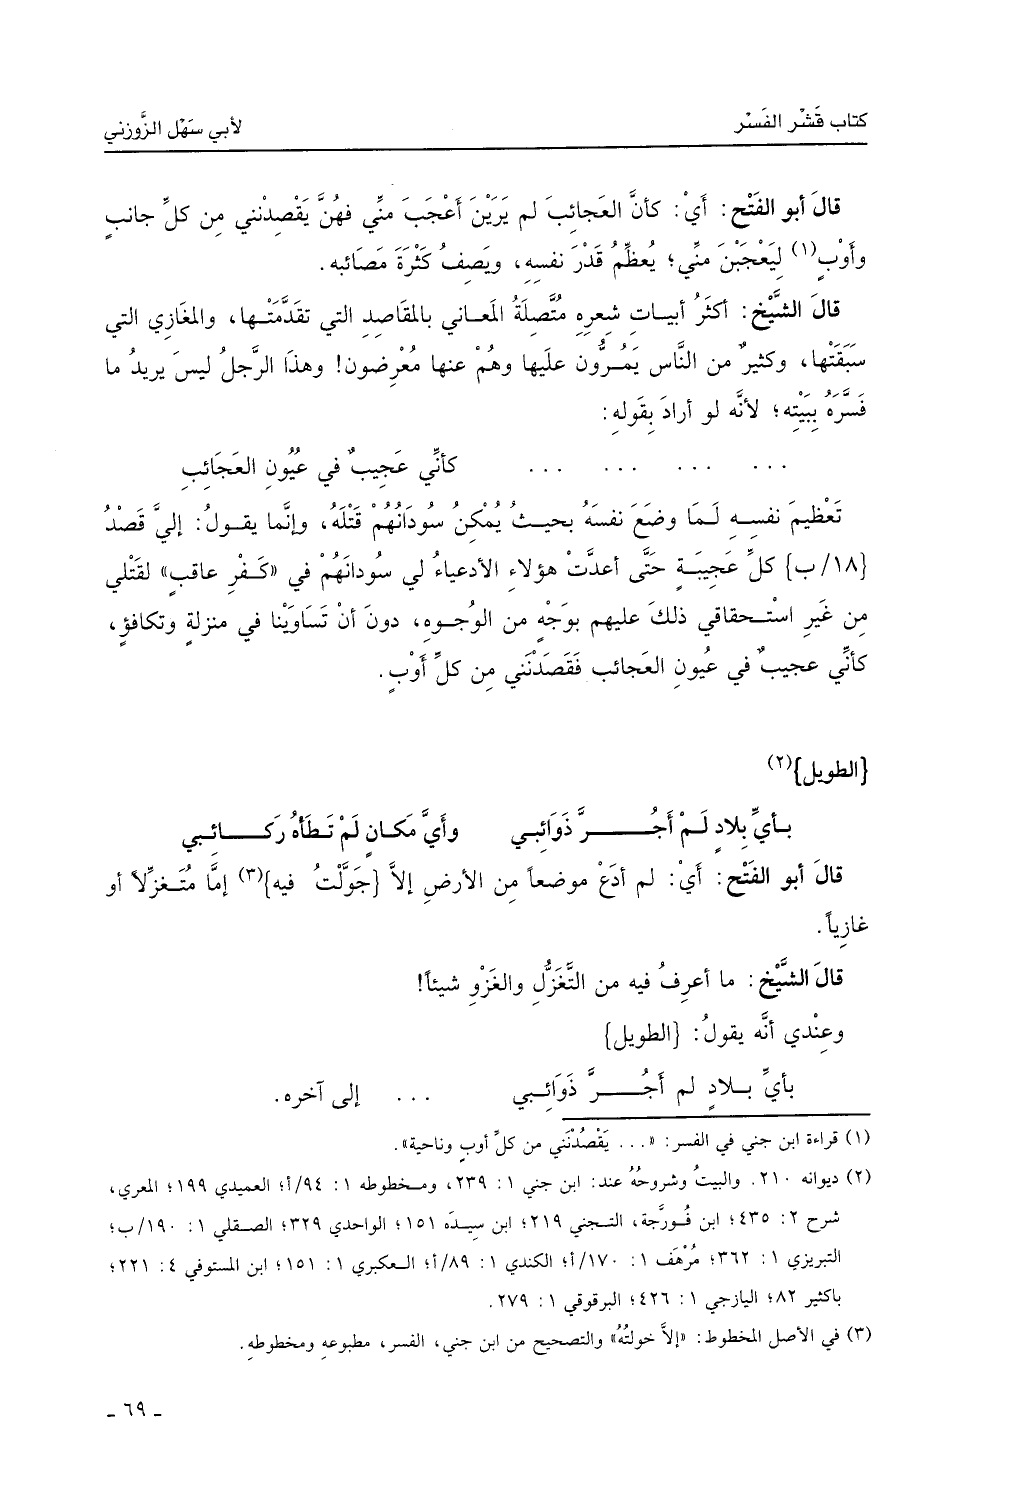 كتاب قَشْر الفَسْر
لأبي سَهْل الزَّوزني
قالَ أبو الفَتْح: أَيْ: كأنَّ العَجائبَ لم يَرَيْنَ أَعْجَبَ منِّي فهُنَّ يَقْصِدْنني مِن كلِّ جانبٍ
وأَوْبٍ(١) لِيَعْجَبْنَ منِّي؛ يُعظِّمُ قَدْرَ نفسِهِ، ويَصِفُ كَثْرَةَ مَصَائبه.
قالَ الشَّيْخ: أكثَرُ أبيـاتِ شعرِهِ مُتَّصِلَةُ المَعـاني بالمَقَاصِدِ التي تقدَّمَتْـها، والمَغَازِي التي
سَبَقَتْها، وكثيرٌ من النَّاس يَمُـرُّون علَيها وهُمْ عنها مُعْرِضون! وهذَا الرَّجلُ ليسَ يريدُ ما
فَسَّرَهُ بِبَيْتِه؛ لأنَّه لو أرادَ بِقَولهِ:
... ... ... ... كأنِّي عَجِيبٌ في عُيُونِ العَجَائبِ
تَعْظِيمَ نفسِـهِ لَـمَا وضَعَ نفسَهُ بحيـثُ يُمْكِنُ سُودَانُهُمْ قَتْلَهُ، وإنَّما يقـولُ: إليَّ قَصْدُ
{١٨/ب} كلِّ عَجِيبَـةٍ حَتَّى أعدَّتْ هؤلاءِ الأدعياءُ لي سُودانَهُمْ في «كَـفْرِ عاقبٍ» لقَتْلي
مِن غَيرِ اسْتْـحقاقي ذلكَ عليهم بوَجْهٍ من الوُجـوهِ، دونَ أنْ تَسَاوَيْنا في منزلةٍ وتكافؤٍ،
كأنِّي عجيبٌ في عُيونِ العَجائب فَقَصَدْنَني مِن كلِّ أَوْبٍ.
{الطويل}(٢)
بـأيِّ بِلادٍ لَـمْ أَجُـــرَّ ذَوَائِبـي وأَيَّ مَكَـانٍ لَمْ تَـطَأْهُ رَكَـــائـبي
قالَ أبو الفَتْح: أَيْ: لم أدَعْ موضعاً مِن الأرضِ إلاَّ {جَوَّلْتُ فيه}(٣) إمَّا مُتَـغزِّلاً أو
غازِياً.
قالَ الشَّيْخ: ما أعرِفُ فيه من التَّغَزُّلِ والغَزْوِ شيئاً!
وعِنْدي أنَّه يقولُ: {الطويل}
بأيِّ بـلادٍ لم أَجُـــرَّ ذَوَائـبي ... إلى آخره.
(١) قراءة ابن جني في الفسر: «... يَقْصُدْنَني من كلِّ أوبٍ وناحية».
(٢) ديوانه ٢١٠. والبيتُ وشروحُهُ عند: ابن جني ١: ٢٣٩، ومـخطوطه ١: ٩٤/أ؛ العميدي ١٩٩؛ المعري،
شرح ٢: ٤٣٥؛ ابن فُـورَّجة، التـجني ٢١٩؛ ابن سِيـدَه ١٥١؛ الواحدي ٣٢٩؛ الصـقلي ١: ١٩٠/ب؛
التبريزي ١: ٣٦٢؛ مُرْهَف ١: ١٧٠/أ؛ الكندي ١: ٨٩/أ؛ الـعكبري ١: ١٥١؛ ابن المستوفي ٤: ٢٢١؛
باكثير ٨٢؛ اليازجي ١: ٤٢٦؛ البرقوقي ١: ٢٧٩.
(٣) في الأصل المخطوط: «إلاَّ خولتُهُ» والتصحيح من ابن جني، الفسر، مطبوعهِ ومخطوطهِ.
ـ ٦٩ ـ